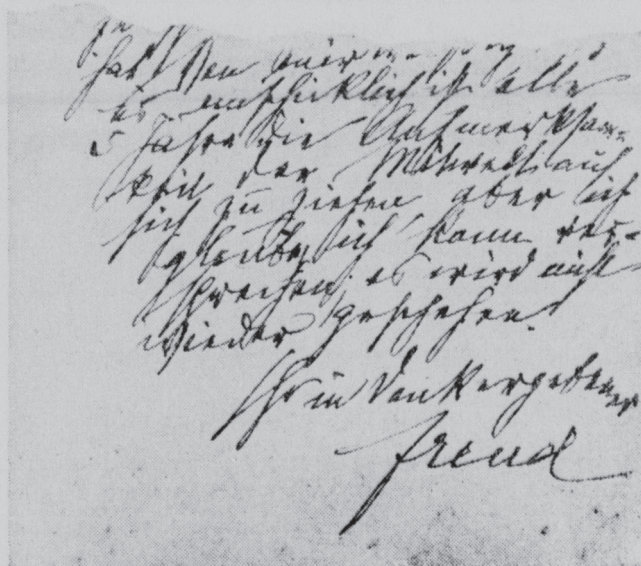 es unschicklich ist alle
5 Jahre die Aufmerksam-
keit der Mitwelt auf
sich zu ziehen aber ich
glaube, ich kann ver-
sprechen: es wird nicht
wieder geschehen.
Ihr in Dank ergebener
Freud